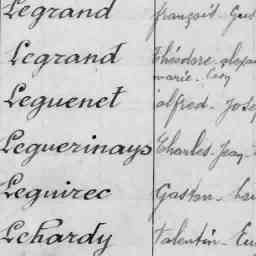 Legrand françois - Gus
Legrand Théodore
marie -
Leguenet alfred - Jose
Leguerinays Charles - Jean -
Leguirec Gaston -
Lehardy Valentin - Eu